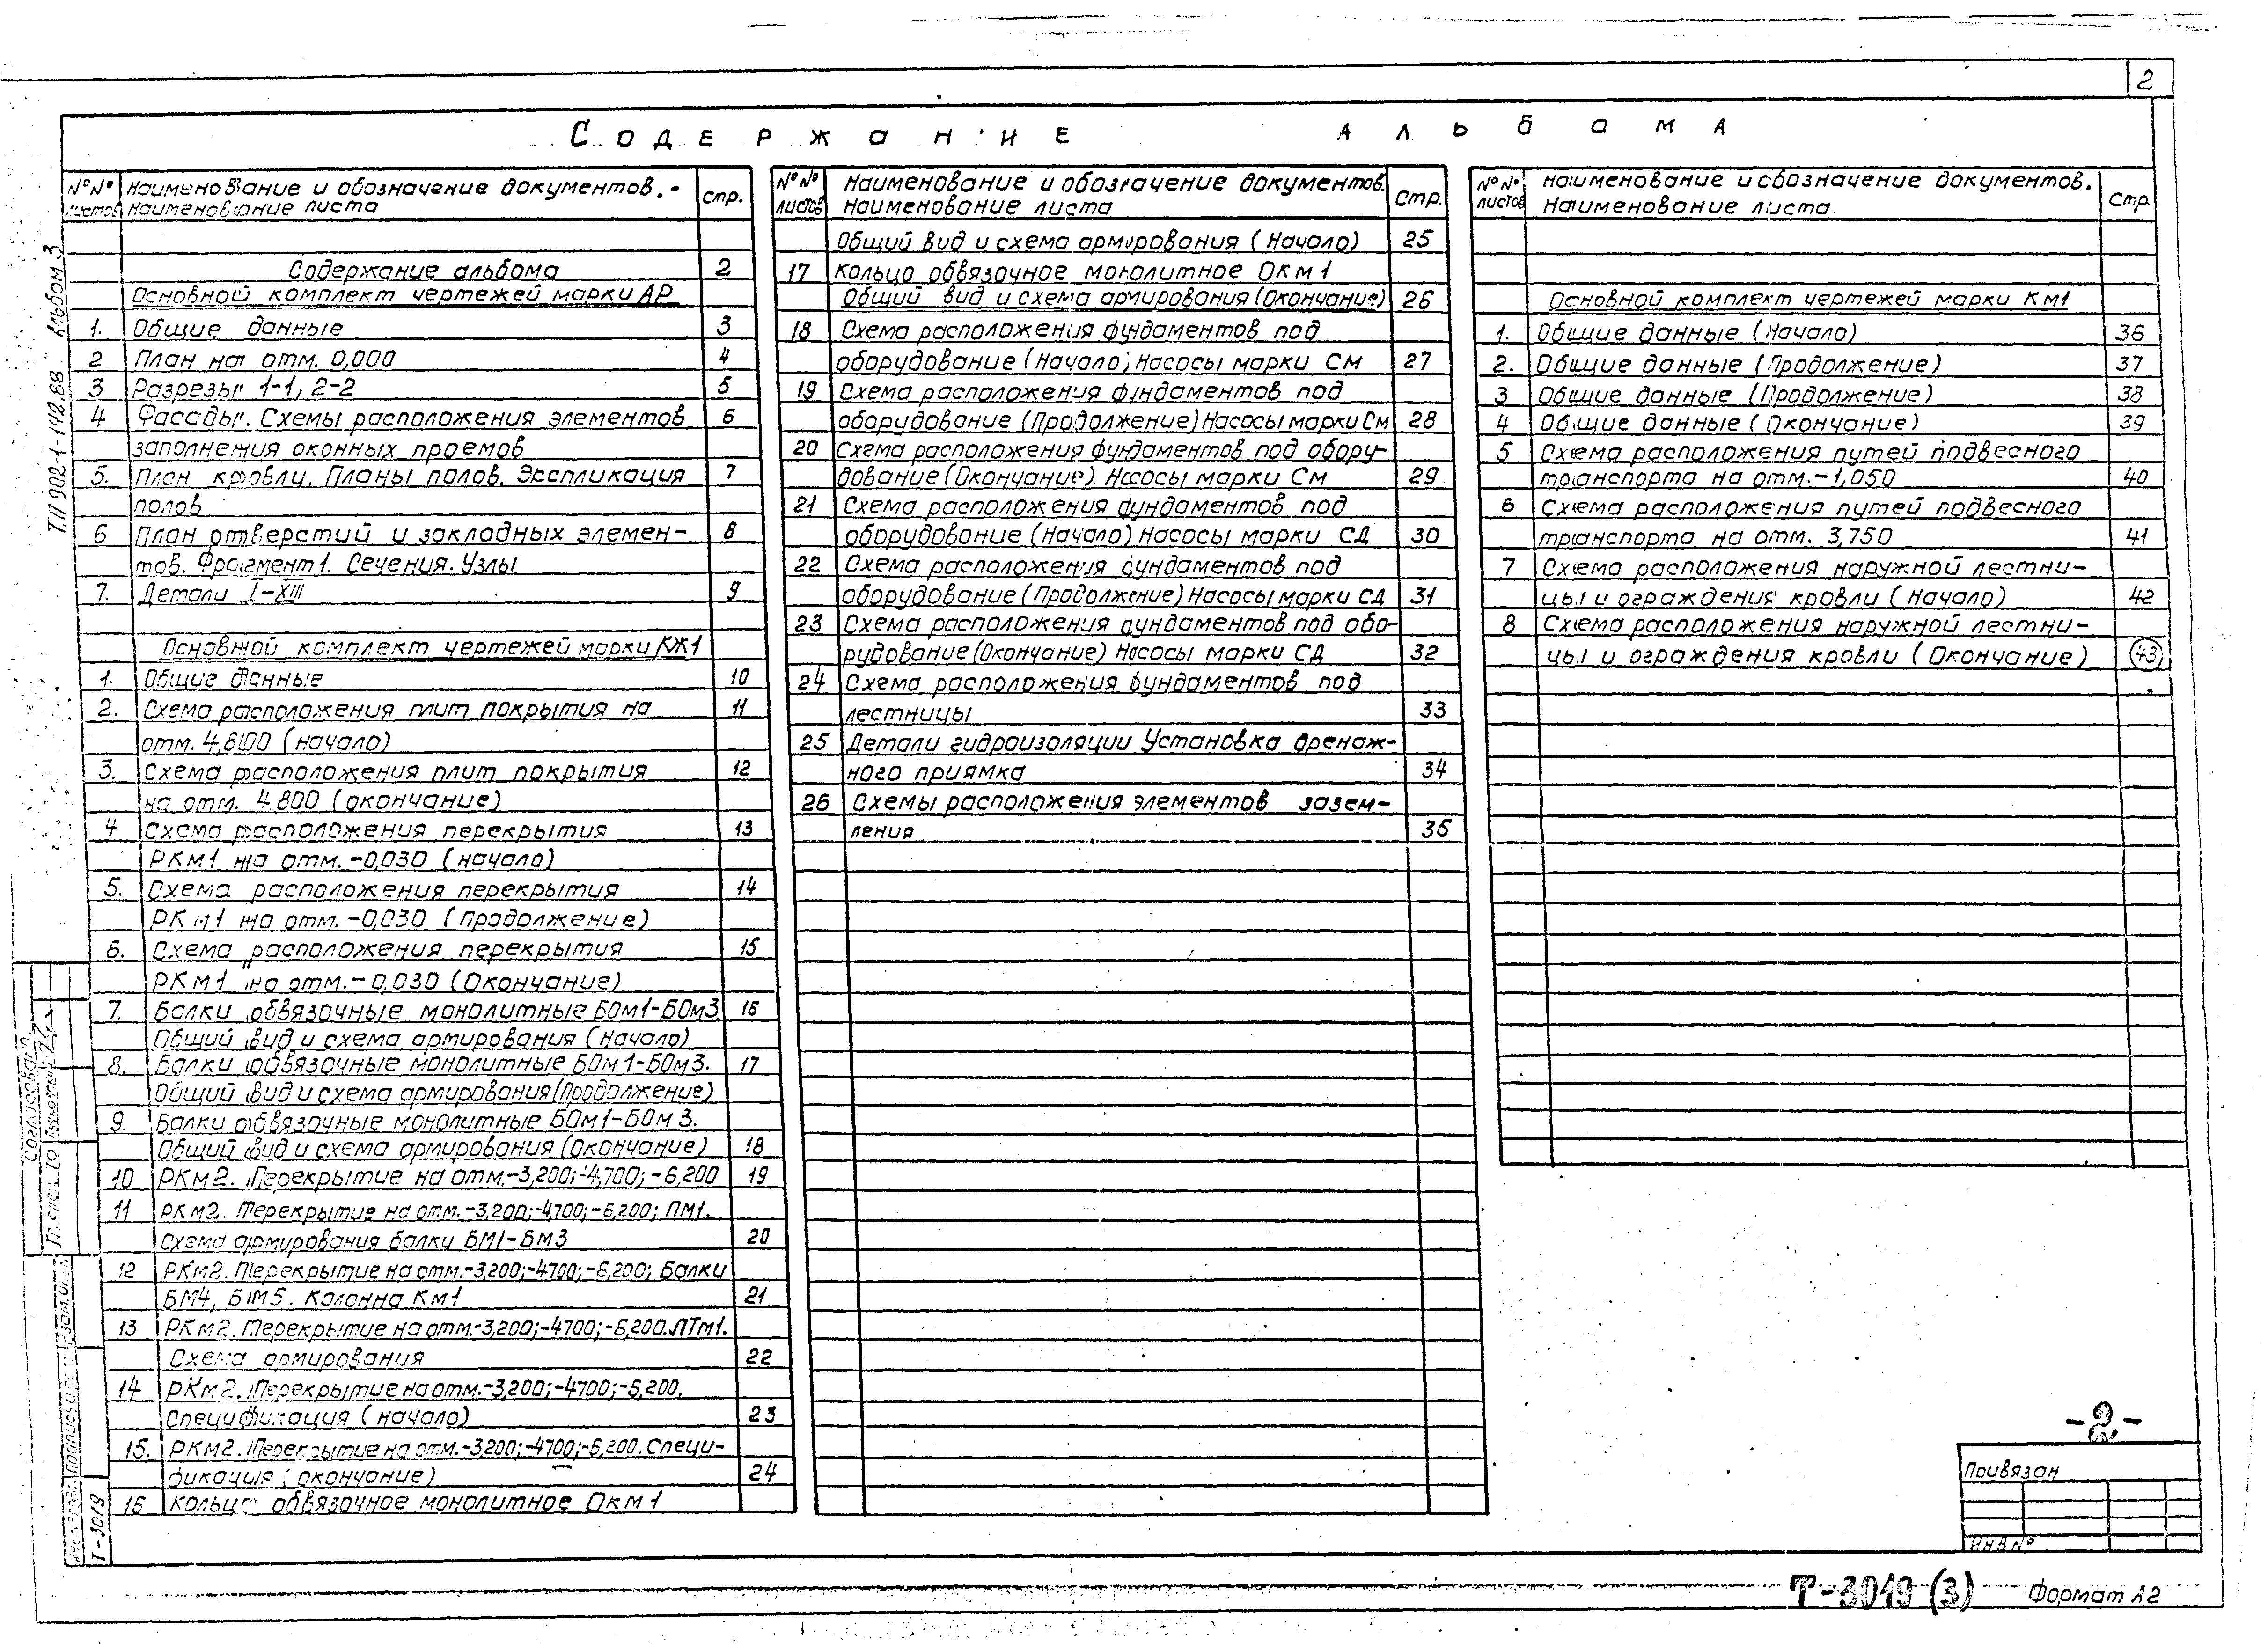 2
Содержание альбома
Т.П 902-1-142.88 Альбом 3
№№ листов
Наименование и обозначение документов.
Наименование листа
стр.
Содержание альбома 2
Основной комплект чертежей марки АР
1. Общие данные 3
2 План на отм. 0,000 4
3 Разрезы 1-1, 2-2 5
4 Фасады. Схемы расположения элементов 6
заполнения оконных проемов
5. План кровли. Планы полов. Экспликация 7
полов
6 План отверстий и закладных элемен- 8
тов. Фрагмент 1. Сечения. Узлы
7. Детали I-XIII 9
Основной комплект чертежей марки КЖ1
1. Общие данные 10
2. Схема расположения плит покрытия на 11
отм. 4,800 (начало)
3. Схема расположения плит покрытия 12
на отм. 4.800 (окончание)
4 Схема расположения перекрытия 13
РКм1 на отм. -0,030 (начало)
5. Схема расположения перекрытия 14
РКм1 на отм. -0,030 (Продолжение)
6. Схема расположения перекрытия 15
РКм1 на отм. -0,030 (Окончание)
7. Балки обвязочные монолитные БОм1-БОм3 16
Общий вид и схема армирования (Начало)
8. Балки обвязочные монолитные БОм1-БОм3. 17
Общий вид и схема армирования (Продолжение)
9. Балки обвязочные монолитные БОм1-БОм3.
Общий вид и схема армирования (Окончание) 18
10 РКм2. Перекрытие на отм.-3,200; -4,700; -6,200 19
11 РКм2. Перекрытие на отм.-3,200;-4700;-6,200; ПМ1.
Схема армирования балки БМ1-БМ3 20
12 РКм2. Перекрытие на отм.-3,200;-4700;-6,200; Балки
БМ4, БМ5. Колонна Км1 21
13 РКм2. Перекрытие на отм.-3,200;-4700;-6,200. ЛТм1.
Схема армирования 22
14 РКм2. Перекрытие на отм.-3,200;-4700;-6,200.
Спецификация (начало) 23
15. РКм2. Перекрытие на отм.-3,200;-4700;-6,200. Специ-
фикация (окончание) 24
16 Кольцо обвязочное монолитное Окм1
№№ листов
Наименование и обозначение документов.
Наименование листа
Стр.
Общий вид и схема армирования (Начало) 25
17 кольцо обвязочное монолитное Окм1
Общий вид и схема армирования (Окончание) 26
18 Схема расположения фундаментов под
оборудование (Начало) Насосы марки СМ 27
19 Схема расположения фундаментов под
оборудование (Продолжение) Насосы марки См 28
20 Схема расположения фундаментов под обору-
дование (Окончание). Насосы марки См 29
21 Схема расположения фундаментов под
оборудование (Начало) Насосы марки СД 30
22 Схема расположения фундаментов под
оборудование (Продолжение) Насосы марки СД 31
23 Схема расположения фундаментов под обо-
рудование (Окончание) Насосы марки СД 32
24 Схема расположения фундаментов под
лестницы 33
25 Детали гидроизоляции Установка дренаж-
ного приямка 34
26 Схемы расположения элементов зазем-
ления 35
№№ листов
Наименование и обозначение документов.
Наименование листа.
Стр
Основной комплект чертежей марки Км1
1. Общие данные (Начало) 36
2. Общие данные (Продолжение) 37
3 Общие данные (Продолжение) 38
4 Общие данные (Окончание) 39
5 Схема расположения путей подвесного
транспорта на отм.-1,050 40
6 Схема расположения путей подвесного
транспорта на отм. 3,750 41
7 Схема расположения наружной лестни-
цы и ограждения кровли (Начало) 42
8 Схема расположения наружной лестни-
цы и ограждения кровли (Окончание) 43
Согласовано
Т-3019
-2-
Привязан
Инв №
Т-3019 (3)
Формат А2